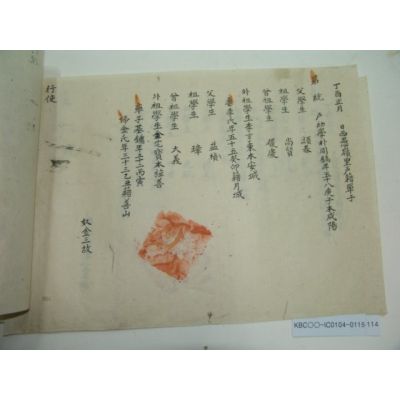 丁酉正月 日西面 籍里戶籍單子
第 統 戶幼學朴周 年五十八庚子本咸陽
父學生 春
祖學生 尙質
曾祖學生 履慶
外祖學生李 東本安城
妻李氏年五十五癸卯籍月城
父學生 益績
祖學生 瑋
曾祖學生 大義
外祖學生金宅寶本 善
率子基鏞年三十二丙寅
婦金氏年三十三乙丑籍善山
奴金三故
行使
KBC○○-IC0104-0115-114